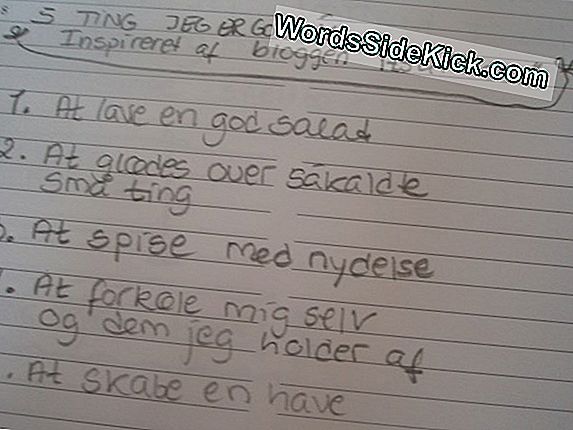 5 TING JEG ER
WordsSideKick.com
Inspireret af bloggen
1. At lave en god salad
2. At glædes over såkaldte
små ting
. At spise med nydelse
. At forkæle mig selv
og dem jeg holder af
. At skabe en have